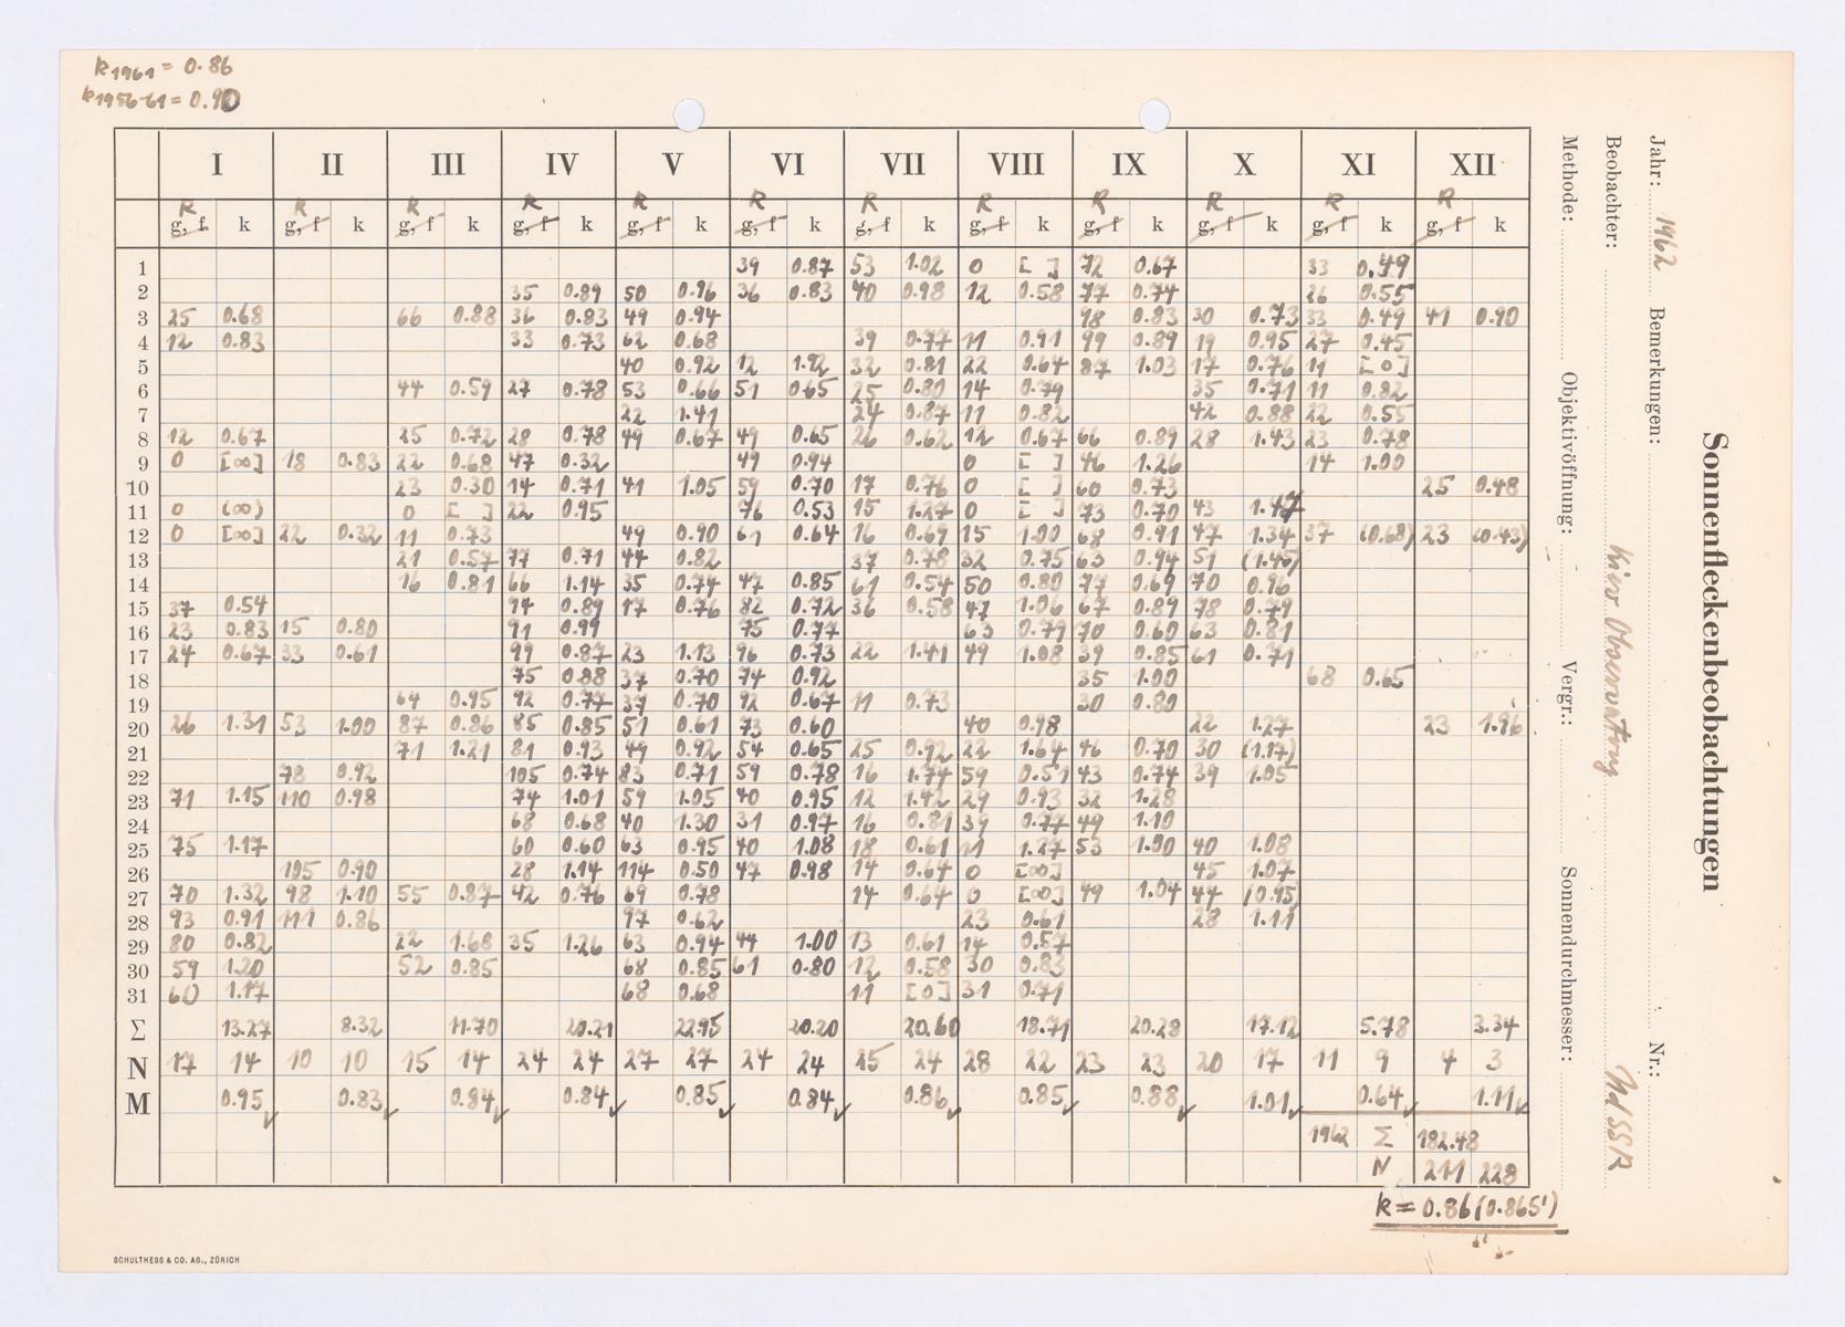 k1961 = 0.86
k1956-61 = 0.90
Sonnenfleckenbeobachtungen
Jahr: 1962 Bemerkungen: Nr.:
Beobachter: Kiew Observatory UdSSR
Methode: Objektivöffnung: Vergr.: Sonnendurchmesser:
I II III IV V VI VII VIII IX X XI XII
R R R R R R R R R R R R
g, f k g, f k g, f k g, f k g, f k g, f k g, f k g, f k g, f k g, f k g, f k g, f k
1 39 0.87 53 1.02 0 [ ] 72 0.67 33 0.49
2 35 0.89 50 0.96 36 0.83 40 0.98 12 0.58 77 0.74 26 0.55
3 25 0.68 66 0.88 36 0.83 49 0.94 98 0.83 30 0.73 33 0.49 41 0.90
4 12 0.83 33 0.73 62 0.68 39 0.77 11 0.91 99 0.89 19 0.95 27 0.45
5 40 0.92 12 1.92 32 0.81 22 0.64 87 1.03 17 0.76 11 [0]
6 44 0.59 27 0.78 53 0.66 51 0.65 25 0.80 14 0.79 35 0.71 11 0.82
7 22 1.41 24 0.87 11 0.82 42 0.88 22 0.55
8 12 0.67 25 0.72 28 0.78 49 0.67 49 0.65 26 0.62 12 0.67 66 0.89 28 1.43 23 0.78
9 0 [∞] 18 0.83 22 0.68 47 0.32 49 0.94 0 [ ] 46 1.26 14 1.00
10 23 0.30 14 0.71 41 1.05 59 0.70 17 0.76 0 [ ] 60 0.73 25 0.48
11 0 (∞) 0 [ ] 22 0.95 76 0.53 15 1.27 0 [ ] 73 0.70 43 1.47
12 0 [∞] 22 0.32 11 0.73 49 0.90 61 0.64 16 0.69 15 1.00 68 0.91 47 1.34 37 (0.68) 23 (0.43)
13 21 0.57 77 0.71 44 0.82 37 0.78 32 0.75 63 0.94 51 (1.45)
14 16 0.81 66 1.14 35 0.74 47 0.85 61 0.54 50 0.80 77 0.69 70 0.96
15 37 0.54 94 0.89 17 0.76 82 0.72 36 0.58 47 1.06 67 0.89 78 0.79
16 23 0.83 15 0.80 91 0.99 75 0.77 63 0.79 70 0.60 63 0.81
17 24 0.67 33 0.61 99 0.87 23 1.13 96 0.73 22 1.41 49 1.08 39 0.85 61 0.71
18 75 0.88 37 0.70 74 0.92 35 1.00 68 0.65
19 64 0.95 92 0.77 37 0.70 92 0.67 11 0.73 30 0.80
20 26 1.31 53 1.00 87 0.86 85 0.85 51 0.61 73 0.60 40 0.98 22 1.27 23 1.96
21 71 1.21 81 0.93 49 0.92 54 0.65 25 0.92 22 1.64 46 0.70 30 (1.17)
22 78 0.92 105 0.74 83 0.71 59 0.78 16 1.74 59 0.51 43 0.74 39 1.05
23 71 1.15 110 0.98 74 1.01 59 1.05 40 0.95 12 1.42 29 0.93 32 1.28
24 68 0.68 40 1.30 31 0.97 16 0.81 39 0.77 49 1.10
25 75 1.17 60 0.60 63 0.95 40 1.08 18 0.61 11 1.27 53 1.00 40 1.08
26 105 0.90 28 1.14 114 0.50 47 0.98 14 0.64 0 [∞] 45 1.07
27 70 1.32 98 1.10 55 0.87 42 0.76 69 0.78 14 0.64 0 [∞] 49 1.04 44 (0.95)
28 93 0.91 111 0.86 97 0.62 23 0.61 28 1.11
29 80 0.82 22 1.68 35 1.26 63 0.94 44 1.00 13 0.61 14 0.57
30 59 1.20 52 0.85 68 0.85 61 0.80 12 0.58 30 0.83
31 60 1.17 68 0.68 11 [0] 31 0.71
Σ 13.27 8.32 11.70 20.21 22.95 20.20 20.60 18.71 20.28 17.12 5.78 3.34
N 17 14 10 10 15 14 24 24 27 27 24 24 25 24 28 22 23 23 20 17 11 9 4 3
M 0.95 0.83 0.84 0.84 0.85 0.84 0.86 0.85 0.88 1.01 0.64 1.11
1962 Σ 182.48
N 211 228
k = 0.86 (0.865')
SCHULTHESS & CO. AG., ZÜRICH